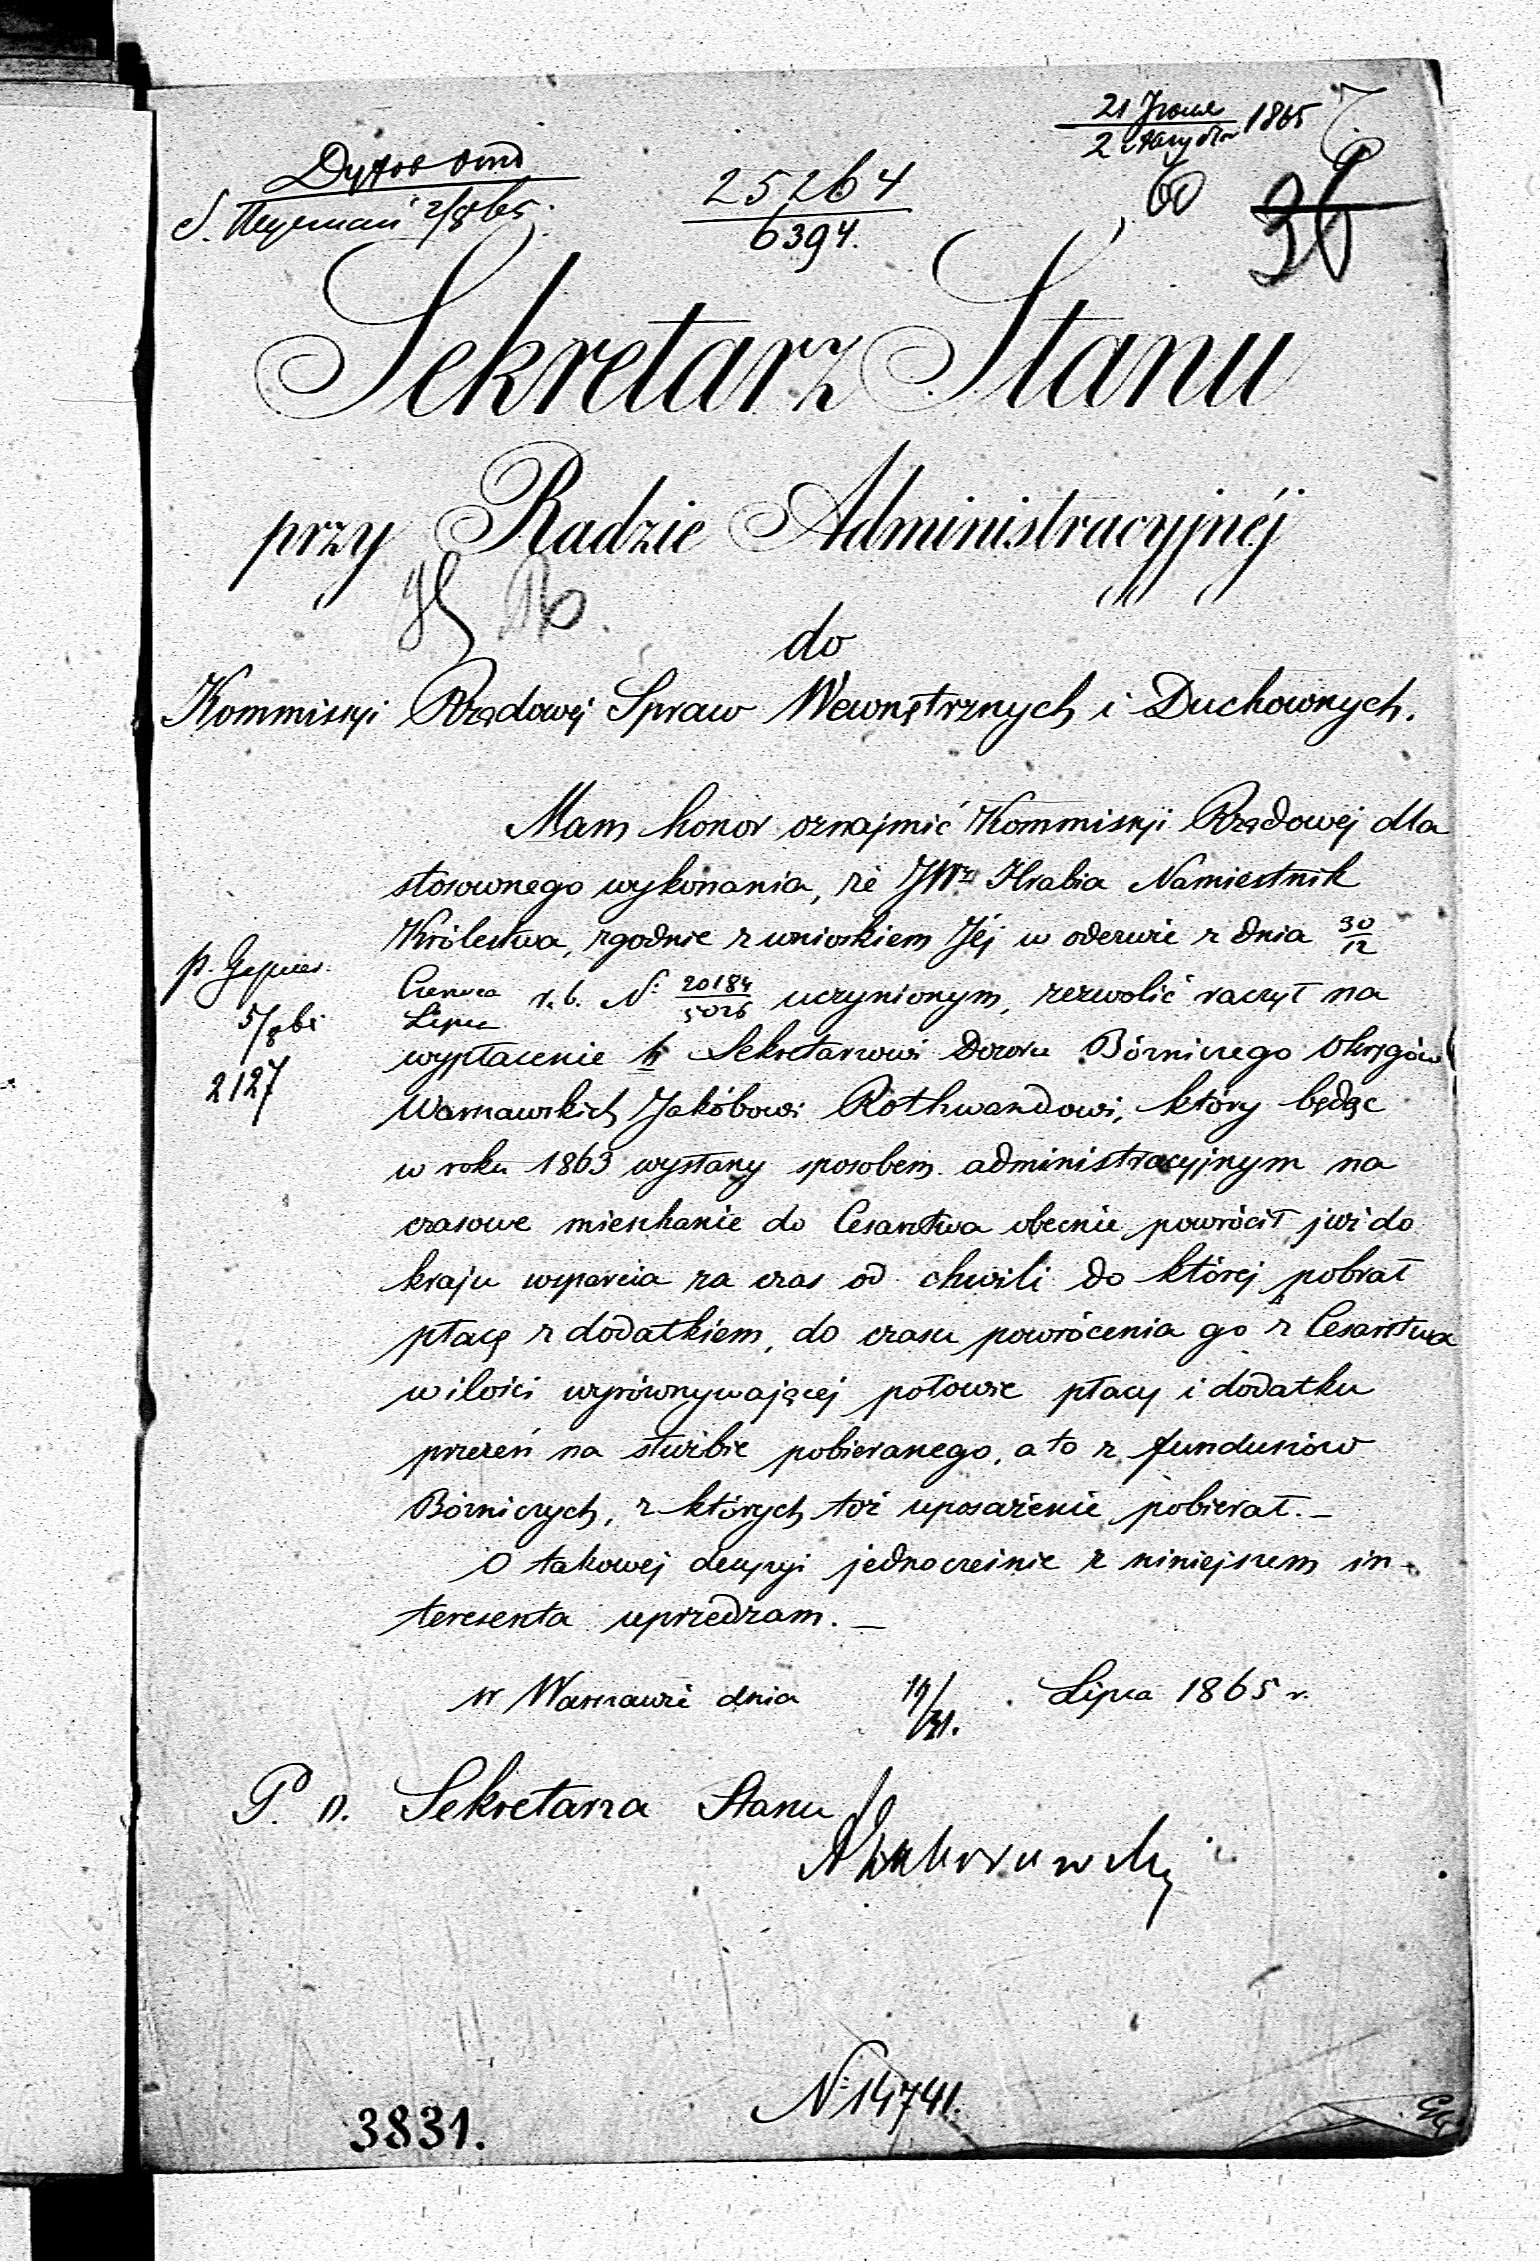 21
2 1865
25264
6394.
60
36
2/8 65.
Sekretarz Stanu
przy Radzie Administracyjnéj
do
Kommissyi Rządowéj Spraw Wewnętrznych i Duchownych.
Mam honor oznajmić Kommissyi Rządowéj dla
stosownego wykonania, że JWny Hrabia Namiestnik
Królestwa, zgodnie z wnioskiem Jéj w odezwie z dnia 30/12
Czerwca/Lipca r. b. N: 20184/5026 uczynionym, zezwolić raczył na
wypłacenie Sekretarzowi Dozoru Bóżniczego Okręgów
Warszawskich Jakóbowi Rothwandowi, który będąc
w roku 1863 wysłany sposobem administracyjnym na
czasowe mieszkanie do Cesarstwa obecnie powrócił już do
kraju wsparcia za czas od chwili do której pobrał
płacę z dodatkiem, do czasu powrócenia go z Cesarstwa
w ilości wyrównywającéj połowie płacy i dodatku
przezeń na służbie pobieranego, a to z funduszów
Bóżniczych, z których toż uposażenie pobierał. _
O takowéj decyzyi jednocześnie z niniejszem in-
teresenta uprzedzam. _
w Warszawie dnia 19/31. Lipca 1865 r.
P. o. Sekretarza Stanu
p.
5/8 65
2127
N: 14741.
3831.